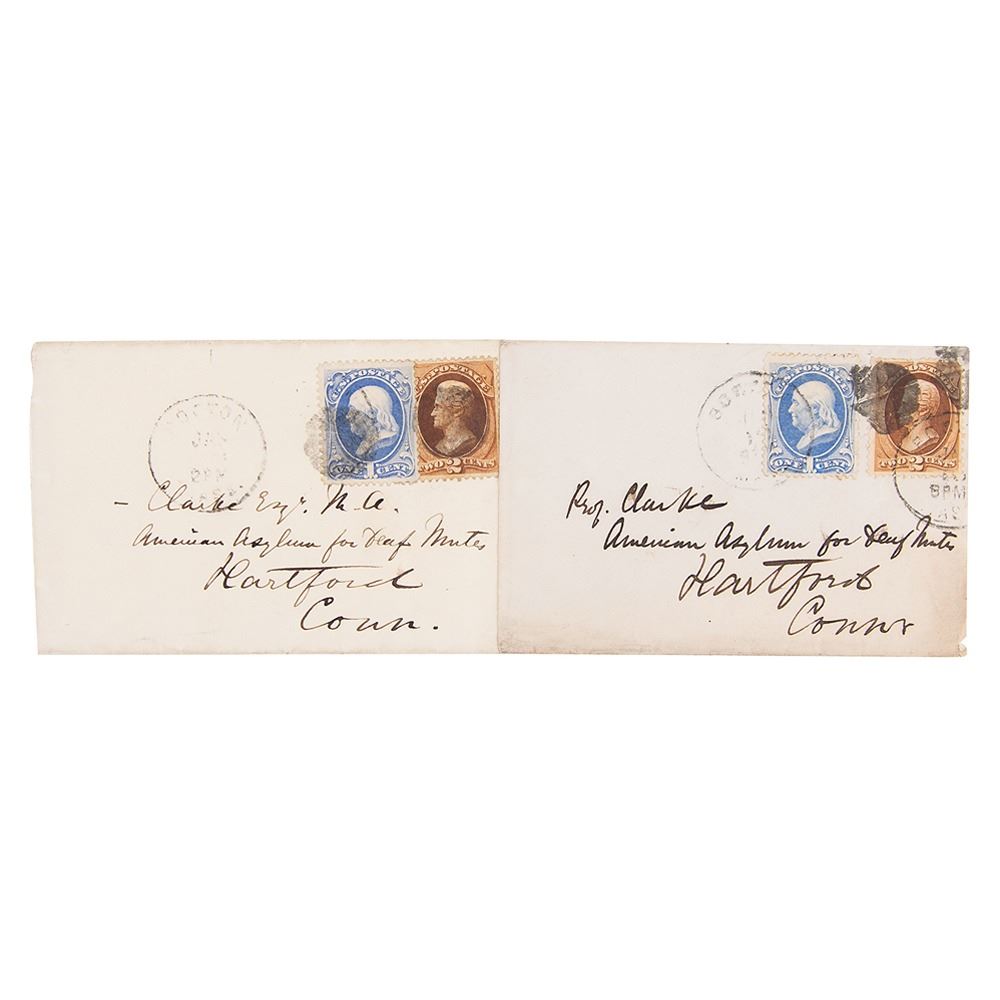 BOSTON
JAN
8 PM
U.S. POSTAGE
ONE 1 CENT
U.S. POSTAGE
TWO 2 CENTS
– Clarke Esqr. M.A.
American Asylum for Deaf Mutes
Hartford
Conn.
BOS
U.S. POSTAGE
ONE 1 CENT
POSTAGE
TWO 2 CENTS
8PM
Prof. Clarke
American Asylum for Deaf Mutes
Hartford
Conn